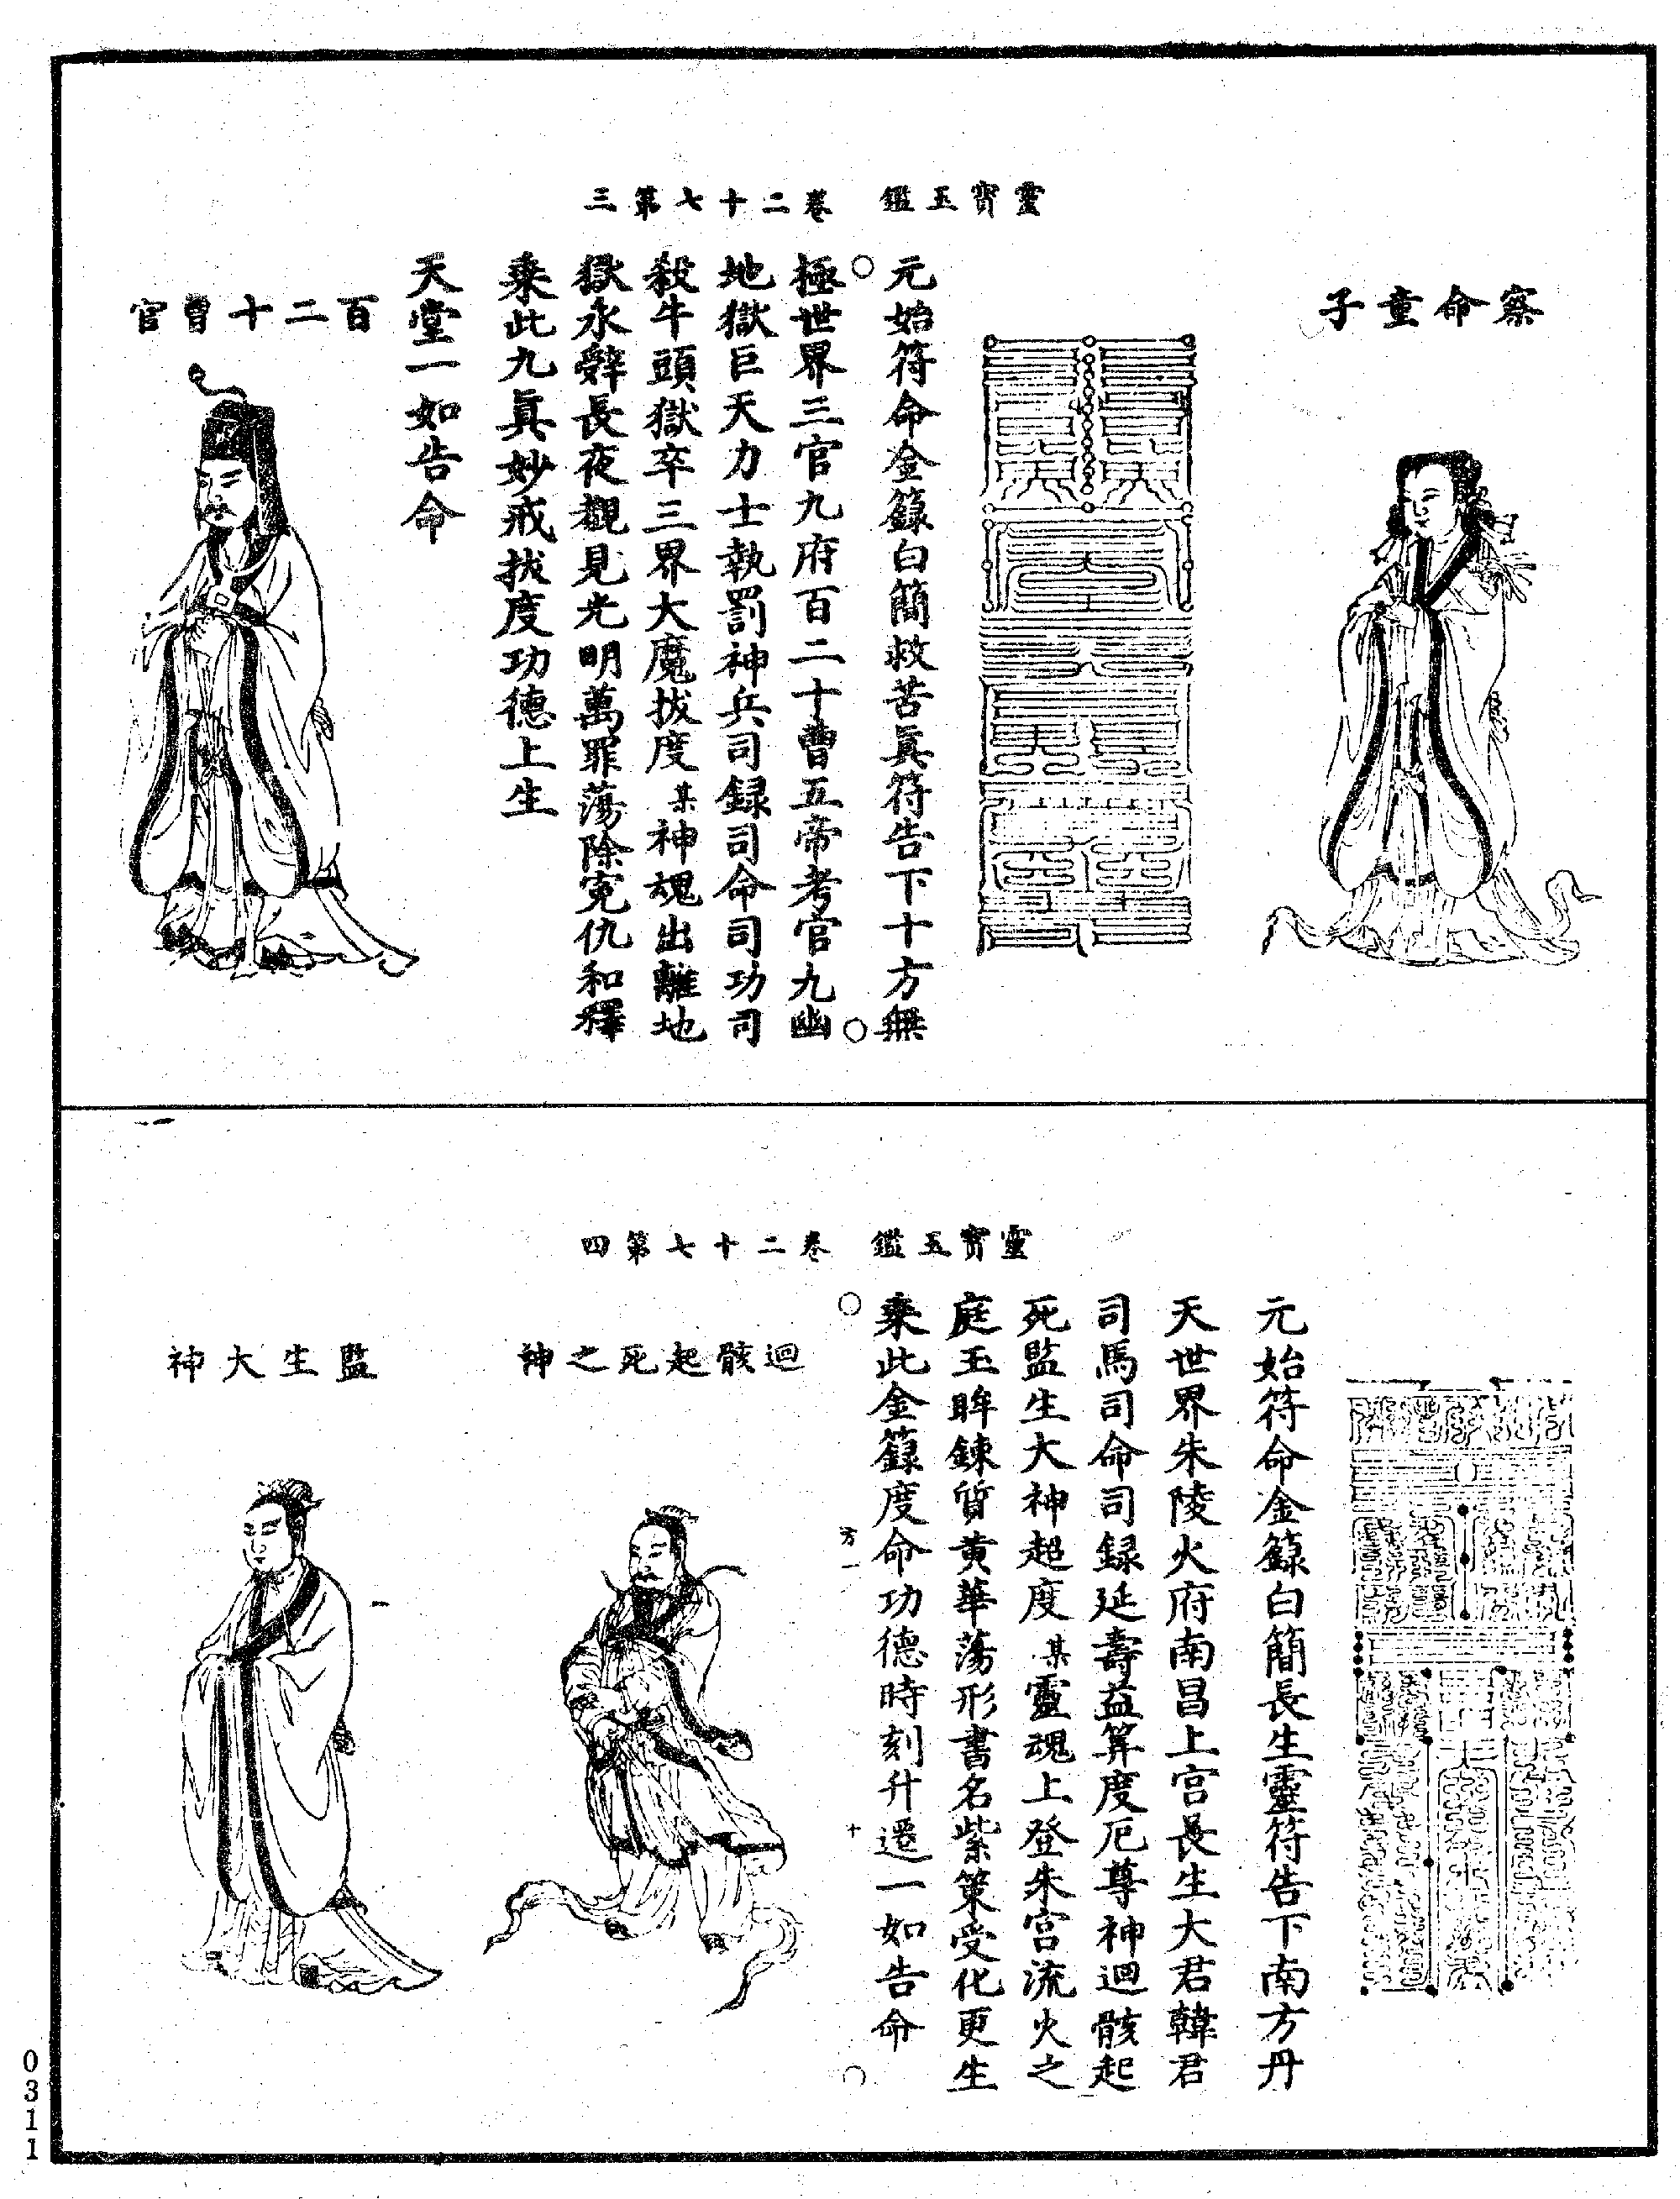 靈寶玉鑑 卷二十七第三
察命童子
元始符命金籙白簡救苦真符告下十方無
極世界三官九府百二十曹五帝考官九幽
地獄巨天力士執罰神兵司録司命司功司
殺牛頭獄卒三界大魔拔度某神魂出離地
獄永辭長夜覩見光明萬罪蕩除寃仇和釋
乘此九真妙戒拔度功德上生
天堂一如告命
百二十曹官
靈寶玉鑑 卷二十七第四
元始符命金籙白簡長生靈符告下南方丹
天世界朱陵火府南昌上宫長生大君韓君
司馬司命司録延壽益筭度厄尊神迴骸起
死監生大神超度某靈魂上登朱宫流火之
庭玉眸鍊質黄華蕩形書名紫策受化更生
乘此金籙度命功德時刻升遷一如告命
方一
十
迴骸起死之神
監生大神
0311